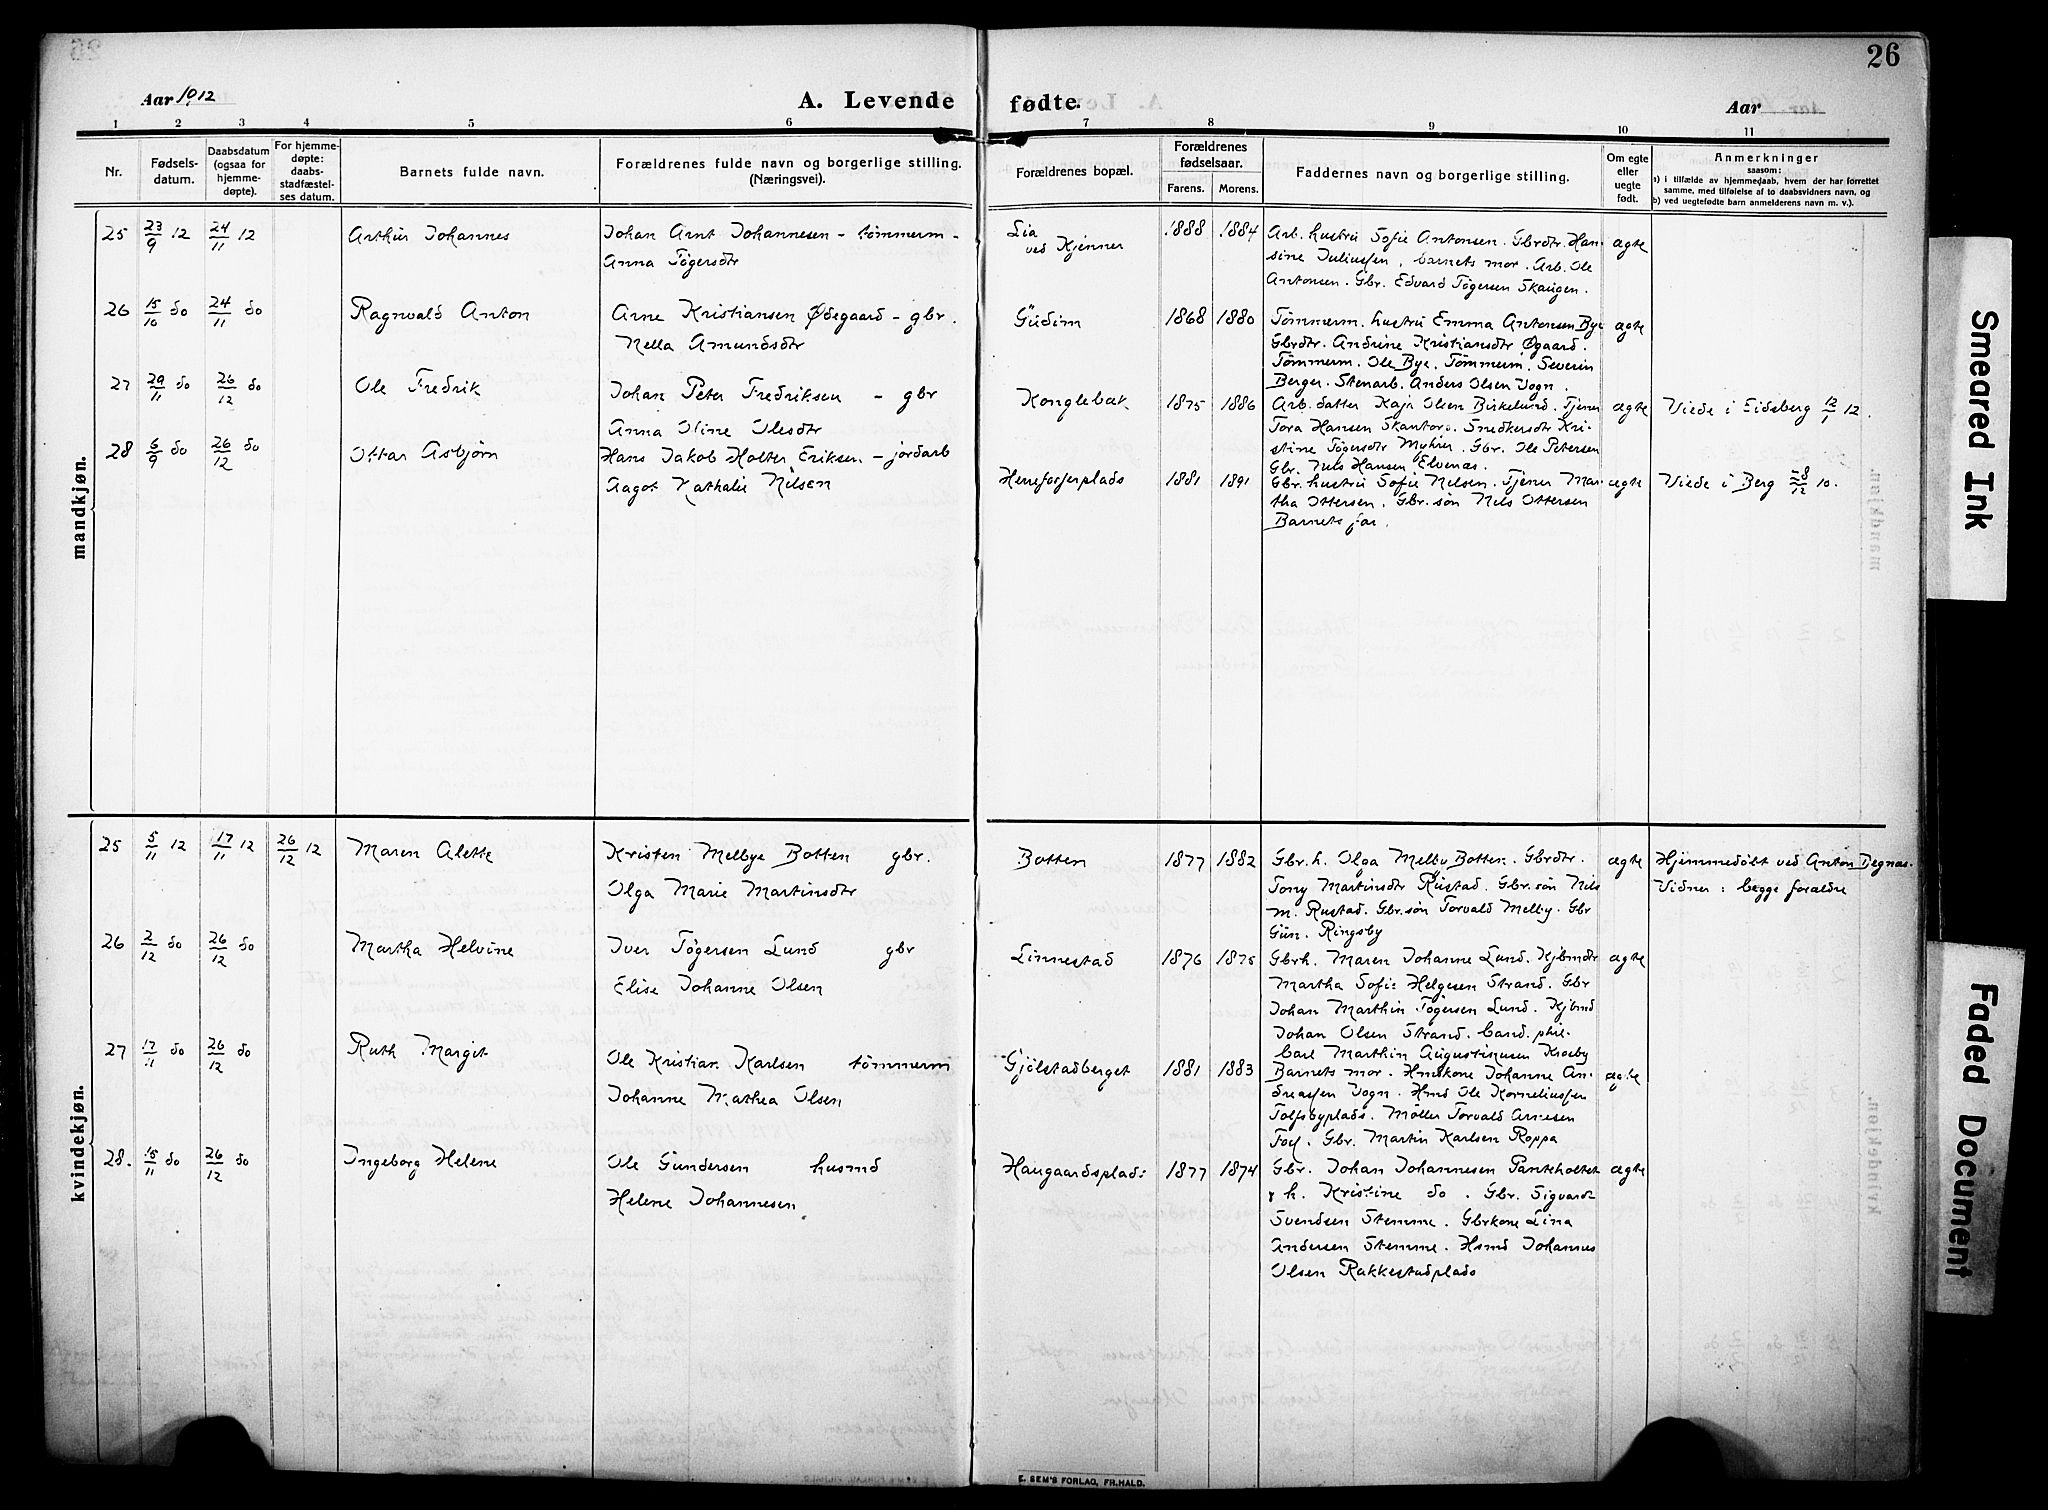 26
Aar 1912
A. Levende fødte.
Aar
1 2 3 4 5 6 7 8 9 10 11
Nr.
Fødsels-
datum.
Daabsdatum
(ogsaa for
hjemme-
døpte).
For hjemme-
døpte:
daabs-
stadfæstel-
ses datum.
Barnets fulde navn.
Forældrenes fulde navn og borgerlige stilling.
(Næringsvei).
Forældrenes bopæl.
Forældrenes
fødselsaar.
Farens. Morens.
Faddernes navn og borgerlige stilling.
Om egte
eller
uegte
født.
Anmerkninger
saasom:
a) i tilfælde av hjemmedaab, hvem der har forrettet
samme, med tilføielse af to daabsvidners navn, og
b) ved uegtefødte barn anmelderens navn m. v.).
mandkjøn.
25 23/9 12 24/11 12 Arthur Johannes
Johan Arnt Johannesen - tømmerm -
Anna Tøgersdtr
Lia
ved Kjenner
1888 1884
Arb. hustru Sofie Antonsen. Gbrdtr. Han-
sine Juliussen, barnets mor. Arb. Ole
Antonsen. Gbr. Edvard Tøgersen Skaugen.
ægte
26 15/10 do 24/11 do Ragnvald Anton
Arne Kristiansen Ødegaard - gbr.
Nella Amundsdtr
Gudim
1868 1880
Tømmerm. hustru Emma Antonsen Bye
Gbrdtr. Andrine Kristiansdtr Øgaard.
Tømmerm. Ole Bye. Tømmerm. Severin
Berger. Stenarb. Anders Olsen Vogn.
ægte
27 29/11 do 26/12 do Ole Fredrik
Johan Peter Fredriksen - gbr
Anna Oline Olesdtr
Konglebæk
1875 1886
Arb. datter Kaja Olsen Birkelund. Tjener
Tora Hansen Skantorp. Snedkersdtr Kri-
stine Tøgersdtr Myhrer. Gbr. Ole Petersen
Gbr. Nils Hansen Elvenas.
ægte
Viede i Eidsberg 12/1 12.
28 6/9 do 26/12 do Ottar Asbjørn
Hans Jakob Holter Eriksen - jordarb
Aagot Nathalie Nilsen
1881 1891
Gbr. hustru Sofie Nilsen. Tjener Mar-
tha Ottersen. Gbr. søn Nils Ottersen
Barnets far.
ægte
Viede i Berg 28/12 10.
kvindekjøn.
25 5/11 12 17/11 12 26/12 12 Maren Alette
Kristen Melbye Botten gbr.
Olga Marie Martinsdtr
Botten
1877 1882
Gbr. h. Olga Melby Botten. Gbrdtr.
Tony Martinsdtr Rustad. Gbr. søn Nils
M. Rustad. Gbr. søn Torvald Melby. Gbr
Gun. Ringsby
ægte
Hjemmedøbt ved Anton Degnæs.
Vidner: begge forældre
26 2/12 do 26/12 do Martha Helvine
Iver Tøgersen Lund gbr
Elise Johanne Olsen
Linnestad
1876 1875
Gbrh. Maren Johanne Lund. Kjbmdtr
Martha Sofie Helgesen Strand. Gbr
Johan Marthin Tøgersen Lund. Kjbmd
Johan Olsen Strand. Cand. phil.
Carl Marthin Augustinusen Kroeby
ægte
27 17/11 do 26/12 do Ruth Margit
Ole Kristian Karlsen tømmerm
Johanne Mathea Olsen
Gjølstadberget
1881 1883
Barnets mor. Hmskone Johanne An-
dreassen Vogn. Hmd Ole Korneliussen
Tolfsbyplads. Møller Torvald Arnesen
Gbr. Martin Karlsen Roppa
ægte
28. 15/11 do 26/12 do Ingeborg Helene
Ole Gundersen husmd
Helene Johannesen
Haugaardsplads
1877 1874
Gbr. Johan Johannesen Panteholtet
& h. Kristine do. Gbr. Sigvardt
Svendsen Stemme. Gbrkone Lina
Andersen Stemme. Hsmd Johannes
Olsen Rakkestadplads
ægte
E. SEM'S FORLAG, FR.HALD.
Smeared Ink
Faded Document